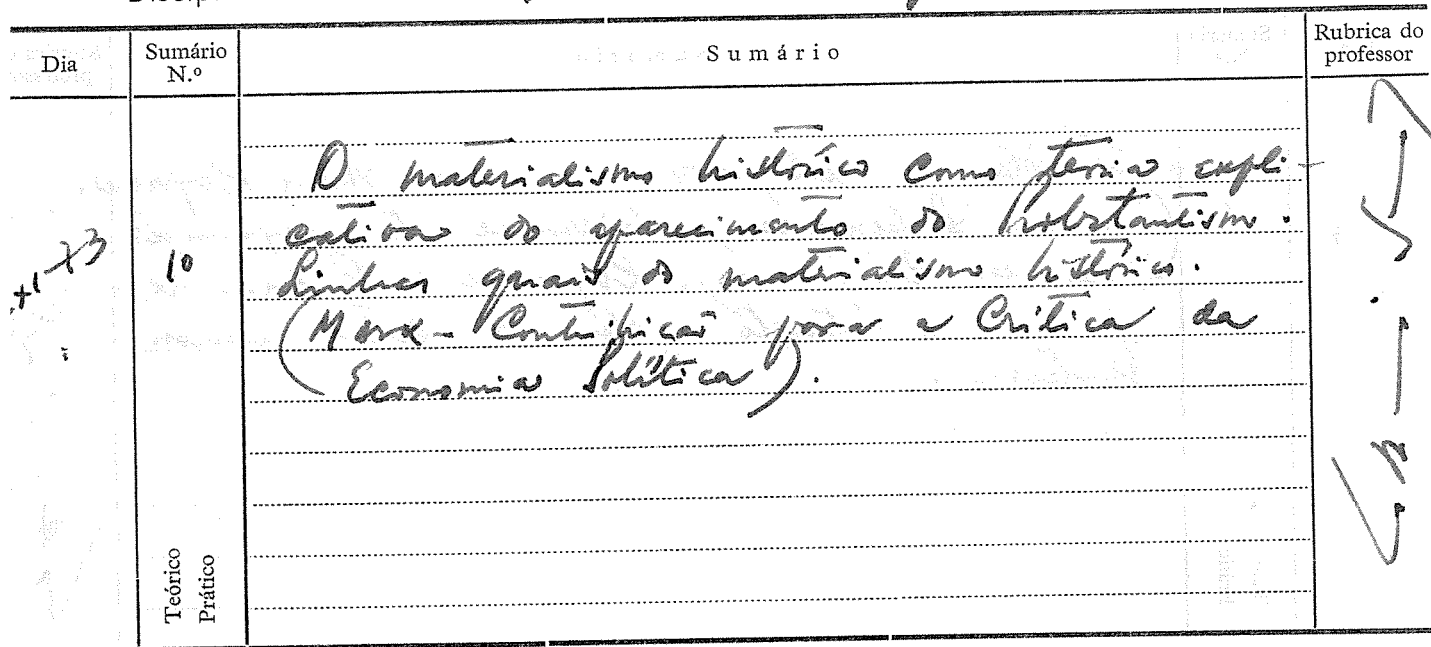 Dia
Sumário N.º
Sumário
Rubrica do professor
10
O materialismo histórico como teoria expli-
cativa do aparecimento do protestantismo.
Linhas gerais do materialismo histórico.
(Marx - Contribuição para a Crítica da
Economia Política).
Teórico
Prático